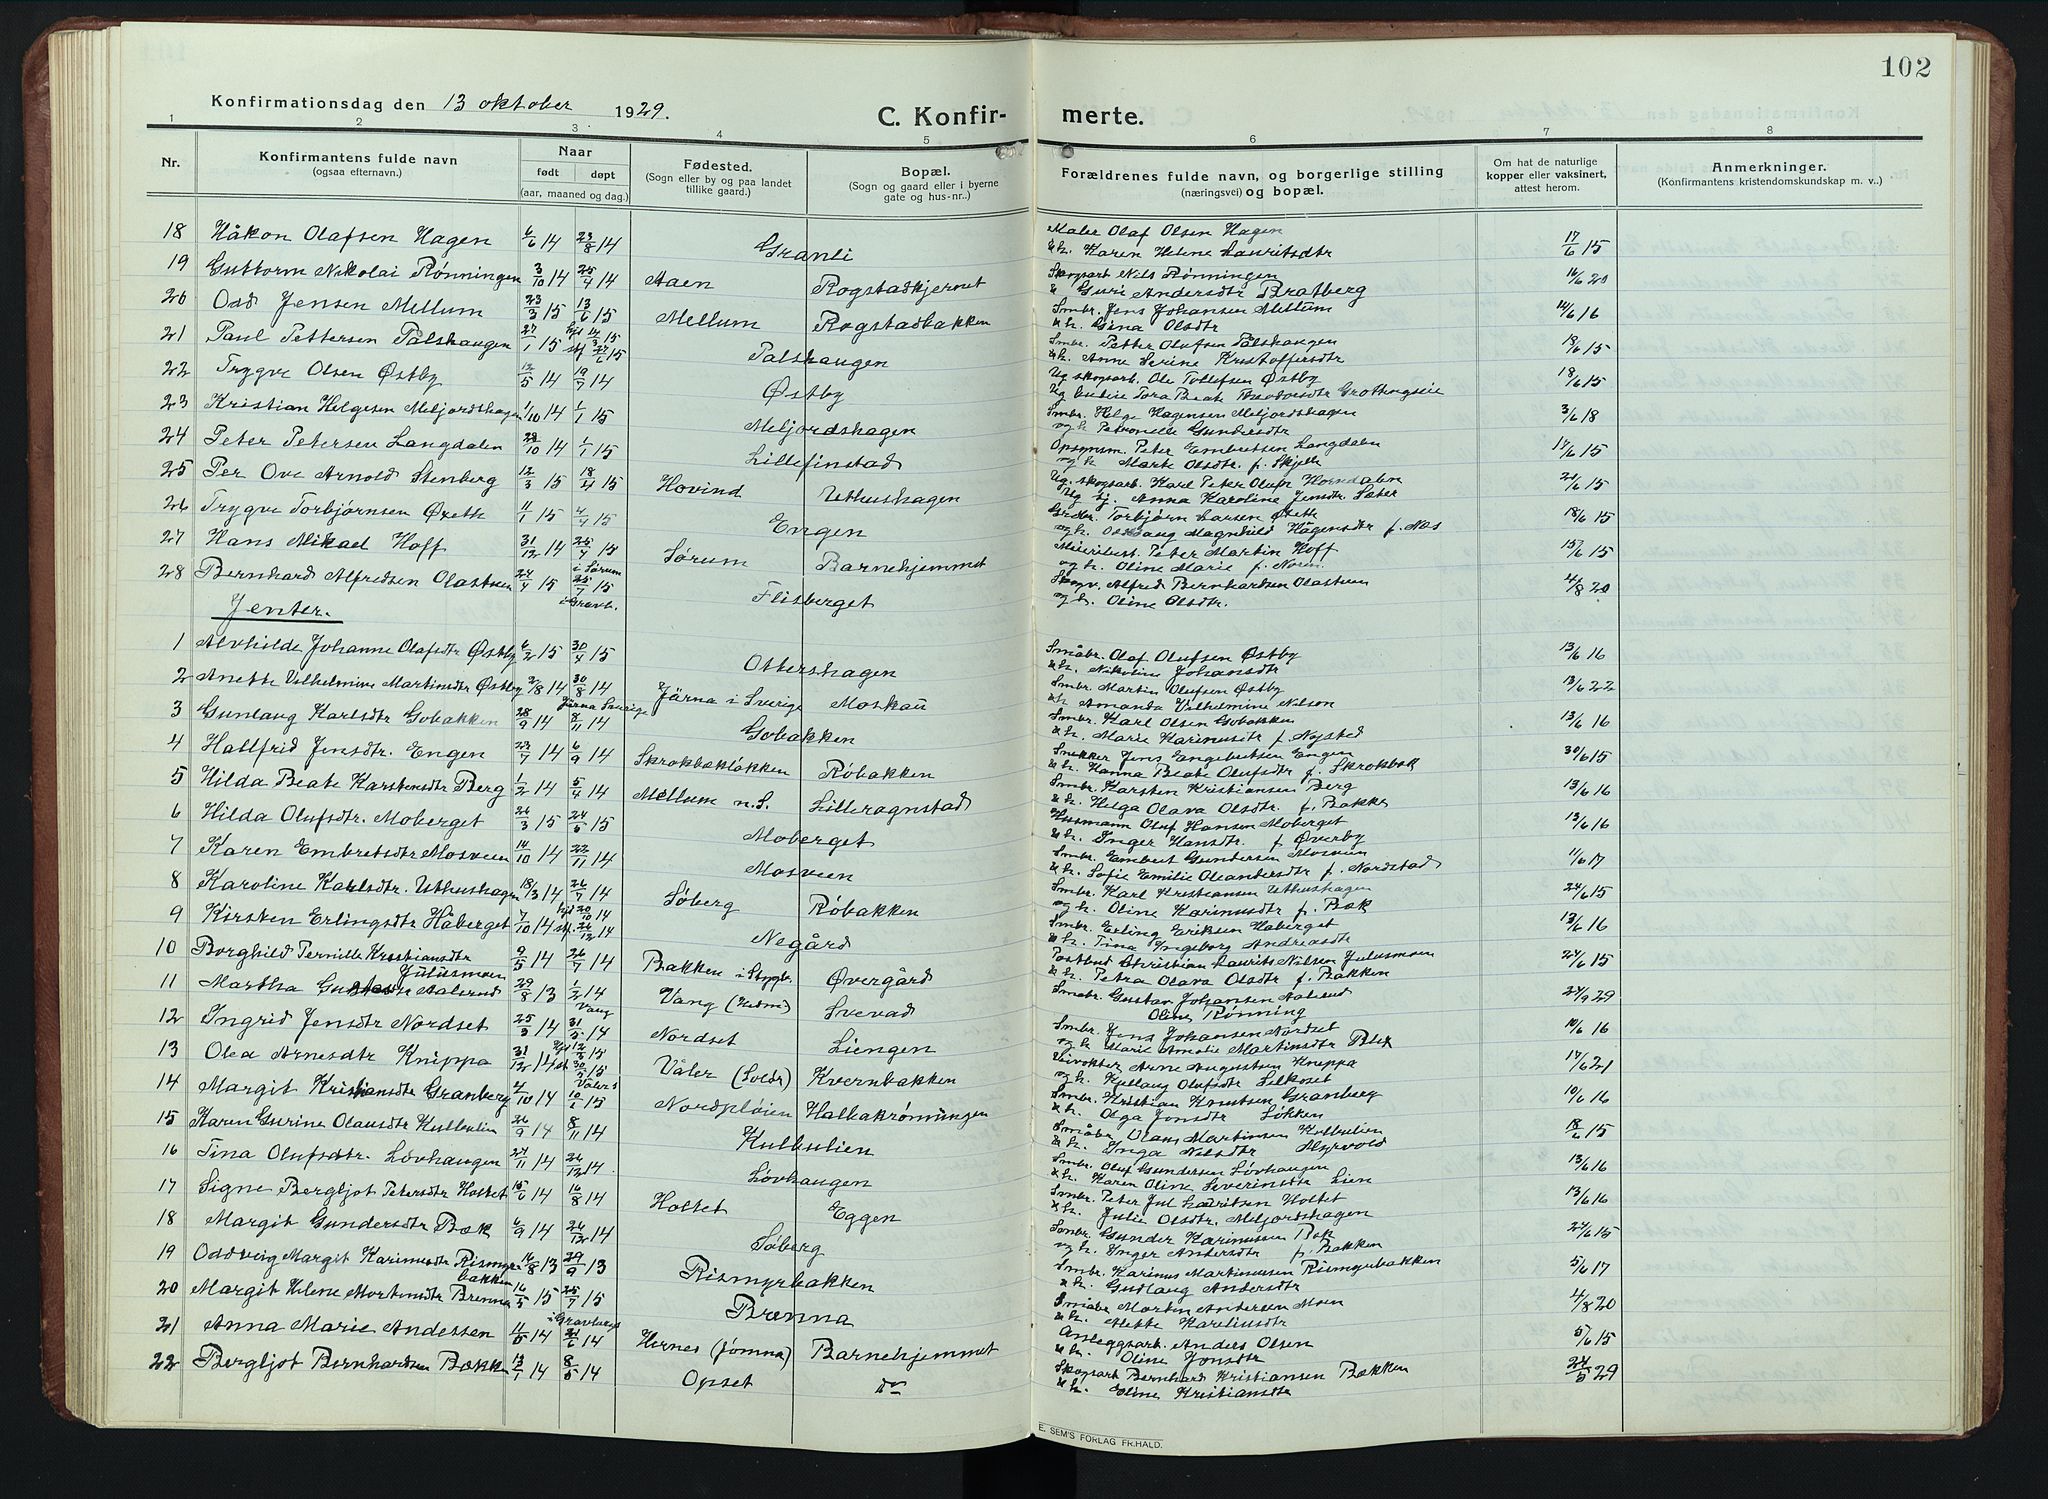 102
Konfirmationsdag den 13 oktober 1929.
C. Konfirmerte.
1 2 3 4 5 6 7 8
Nr. Konfirmantens fulde navn (ogsaa efternavn.) Naar født døpt (aar, maaned og dag.) Fødested. (Sogn eller by og paa landet tillike gaard.) Bopæl. (Sogn og gaard eller i byerne gate og hus-nr..) Forældrenes fulde navn, og borgerlige stilling (næringsvei) og bopæl. Om hat de naturlige kopper eller vaksinert, attest herom. Anmerkninger. (Konfirmantens kristendomskundskap m. v..)
18 Håkon Olafsen Hagen 6/6 14 23/8 14 Granli Maler Olaf Olsen Hagen 17/6 15
& h. Karen Helene Lauritsdtr
19 Guttorm Nikolai Rønningen 3/10 14 25/4 14 Aaen Rogstadkjernet Skogsarb Nils Rønningen 16/6 20
& Guri Andersdtr Bratberg
20 Odd Jensen Mellum 23/3 15 13/6 15 Mellum Rogstadbakken Smbr. Jens Johansen Mellum 14/6 16
& h. Gina Olsdtr
21 Paul Pettersen Pålshaugen 27/1 15 hjd 14/3 15 st 27/6 15 Pålshaugen Smbr. Petter Olufsen Pålshaugen 18/6 15
& h. Anne Serine Kristoffersdtr
22 Trygve Olsen Østby 12/5 14 19/7 14 Østby Ug skogsarb. Ole Tollefsen Østby 18/6 15
Ug Tora Beate Theodorsdtr
23 Kristian Helgesen Meljordshagen 1/10 14 1/1 15 Meljordshagen Smbr. Helge Hagensen Meljordshagen 3/6 18
og h Petronelle Gundersdtr
24 Peter Petersen Langdalen 28/10 14 1/1 15 Lillefinstad Opsynsm. Peter Embretsen Langdalen 17/6 15
og h Marte Olsdtr. f. Skjelle
25 Per Ove Arnold Stenberg 12/3 15 18/4 15 Hovind Uthushagen Ug. skogsarb. Karl Peter Olufs Horndalen 24/6 15
Ug tj. Anna Karoline Jensdtr. Sæter
26 Trygve Torbjørnsen Øxeth 11/1 15 4/4 15 Engen Grdbr. Torbjørn Larsen Øxeth 18/6 15
og h. Magnhild Hågensdtr f. Næs
27 Hans Mikael Hoff 31/12 14 25/4 15 i Sørum Sørum Barnehjemmet Meieribest. Peter Martin Hoff 15/6 15
og h. Oline Marie f. Noren
28 Bernhard Alfredsen Olastuen 24/4 15 25/7 15 i Gravb. Flisberget Skogv. Alfred Bernhardsen Olastuen 4/8 20
og h. Oline Olsdtr.
Jenter.
1 Alvhilde Johanne Olafsdtr Østby 6/2 15 30/4 15 Ottershagen Småbr. Olaf Olufsen Østby 13/6 16
& h. Nikoline Johansdtr
2 Anette Vilhelmine Martinsdtr Østby 2/8 14 30/8 14 Järna Sverige Järna i Sverige Moskau Smbr. Martin Olufsen Østby 13/6 22
& h Amanda Vilhelmine Nilson
3 Gunlaug Karlsdtr Gobakken 28/9 14 8/11 14 Gobakken Smbr. Karl Olsen Gobakken 13/6 16
& h. Marie Karinusdtr f. Nysted
4 Hallfrid Jensdtr. Engen 23/7 14 6/9 14 Skrokbækløkken Røbakken Snekker Jens Engebretsen Engen 30/6 15
& h. Hanna Beate Olufsdtr f. Skrokbæk
5 Hilda Beate Karstensdtr Berg 1/2 14 5/4 14 Mellum n. S. Lilleragnstad Smbr. Karsten Kristiansen Berg 13/6 16
& h. Helga Olava Olsdtr. f. Bakke
6 Hilda Olufsdtr. Moberget 26/3 15 24/5 15 Moberget Husmann Oluf Hansen Moberget 13/6 16
& h. Inger Hansdtr. f Øverby
7 Karen Embretsdtr Mosveen 14/10 14 22/11 14 Mosveen Smbr. Embret Gundersen Mosveen 11/6 17
& h. Sofie Emilie Oleandersdtr f. Nordstad
8 Karoline Karlsdtr. Uthushagen 18/3 14 26/7 14 Søberg Røbakken Smbr. Karl Kristiansen Uthushagen 24/6 15
og h. Oline Karinusdtr f. Bæk
9 Kirsten Erlingsdtr Håberget 7/10 14 hjd 20/10 14 stf. 26/12 14 Negård Smbr. Erling Eriksen Håberget 13/6 16
& h. Tina Ingeborg Andreasdtr
10 Borghild Pernille Kristiansdtr Julusmoen 9/5 14 26/7 14 Bakken i Stygbr. Øvergård Postbud Christian Laurits Nilsen Julusmoen 24/6 15
& h. Petra Olava Olsdtr f. Bakken
11 Martha Gustavsen Aalerud 29/8 13 1/2 14 Vang Vang (Hedm) Svevad Smabr. Gustav Johansen Aalerud 24/9 29
Oline Rønning
12 Ingrid Jensdtr Nordset 25/3 14 31/5 14 Nordset Liengen Smbr. Jens Johansen Nordset 10/6 16
og h Marie Amalie Martinsdtr Blix
13 Olea Arnesdtr Knippa 31/12 14 hjd 12/3 15 st 30/5 15 Våler S Våler (Solør) Kvernbakken Veivokter Arne Augustsen Knippa 17/6 21
og h. Kjellaug Olufsdtr Silkoset
14 Margit Kristiansdtr Granberg 4/10 14 10/1 15 Nordpløien Halbakrønningen Smbr. Kristian Knutsen Granberg 10/6 16
& h. Olga Jonsdtr Løkken
15 Karen Gurine Olausdtr Kulbulien 26/9 14 8/11 14 Kulbulien Småbr Olaus Martinsen Kulbulien 18/6 15
& h. Inga Nilsdtr Myrvold
16 Tina Olufsdtr. Løvhaugen 27/11 14 26/12 14. Løvhaugen Smbr. Oluf Gundersen Løvhaugen 13/6 16
& h. Karen Oline Severinsdtr Lien
17 Signe Bergljot Petersdtr Holtet 15/6 14 16/8 14 Holtet Eggen Smbr. Peter Jul Lauritsen Holtet 13/6 16
& h. Julie Olsdtr. Meljordshagen
18 Margit Gundersdtr Bæk 6/9 14 26/12 14 Søberg Smbr. Gunder Karinussen Bæk 24/6 15
og h. Inger Andersdtr f. Bakken
19 Oddveig Margit Karinusdtr Rismyrbakken 16/8 13 29/9 13 Rismyrbakken Smbr. Karinus Martinussen Rismyrbakken 5/6 17
& h. Gudlaug Andersdtr
20 Margit Helene Mortensdtr Brenna 16/5 15 25/7 15 i Gravberget Brenna Småbr Martin Andersen Moen 4/8 20
& h. Mette Kareliusdtr
21 Anna Marie Andessen 11/5 14 21/6 14 Hernes (Jømna) Barnehjemmet Anleggsarb. Anders Olsen 5/6 15
& h. Oline Jonsdtr
22 Bergljot Bernhardsen Bækken 13/1 14 8/5 14 Opset do Skogsarb Bernhard Kristiansen Bækken 24/5 29
& h. Eline Kristiansdtr
E. SEM'S FORLAG FR.HALD.